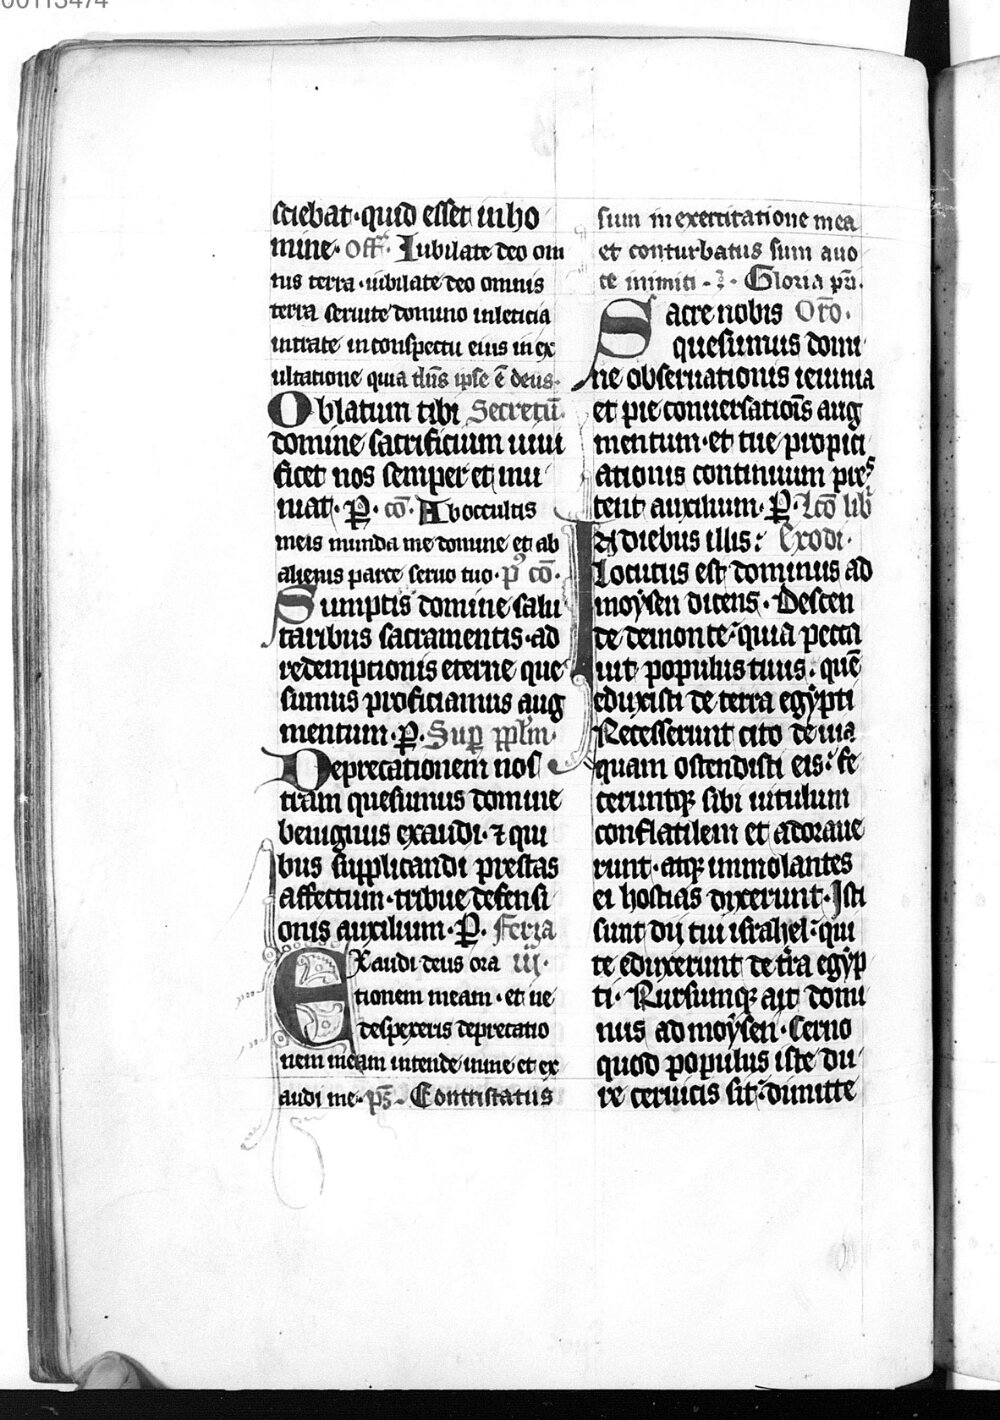 00113474
sciebat · quid esset in ho
mine · Off̄. Iubilate deo om
nis terra · iubilate deo omnis
terra seruite domino in leticia
intrate in conspectu eius in ex
ultatione quia dn̄s ipse ē deus ·
Oblatum tibi Secretū.
domine sacrificium uiui
ficet nos semper et mu
niat · P̲ · cō · Ab occultis
meis munda me domine et ab
alienis parce seruo tuo · p⁹ cō ·
Sumptis domine salu
taribus sacramentis · ad
redemptionis eterne que
sumus proficiamus aug
mentum · P̲ · Suꝑ pp̄lm ·
Deprecationem nos
tram quesumus domine
benignus exaudi · ⁊ qui
bus supplicandi prestas
affectum · tribue defensi
onis auxilium · P̲ · Feria
Exaudi deus ora iij ·
tionem meam · et ne
despexeris deprecatio
nem meam intende in me et ex
audi me · p̄s · Contristatus
sum in exercitatione mea
et conturbatus sum a uo
ce inimici · Gloria pr̄i.
Sacre nobis Orō ·
quesumus domi
ne obseruationis ieiunia
et pie conuersatiōis aug
mentum · et tue propici
ationis continuum pres
tent auxilium · P̲ · Lcō lib
In diebus illis : Exodi ·
Locutus est dominus ad
moysen dicens · Descen
de de monte · quia pecca
uit populus tuus · quē
eduxisti de terra egypti
Recesserunt cito de uia
quam ostendisti eis : fe
ceruntqꝫ sibi uitulum
conflatilem et adoraue
runt · atqꝫ immolantes
ei hostias dixerunt · Isti
sunt dij tui israhel : qui
te eduxerunt de t̄ra egyp
ti · Rursumqꝫ ait domi
nus ad moysen · Cerno
quod populus iste du
re ceruicis sit : dimitte